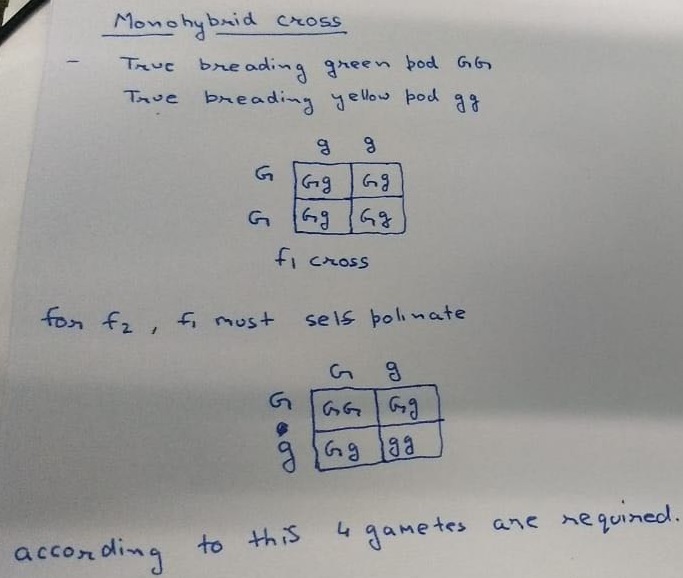 Monohybrid cross
- True breading green pod GG
True breading yellow pod gg
g g
G Gg Gg
G Gg Gg
f1 cross
for f2, f1 must self polinate
G g
G GG Gg
g Gg gg
according to this 4 gametes are required.